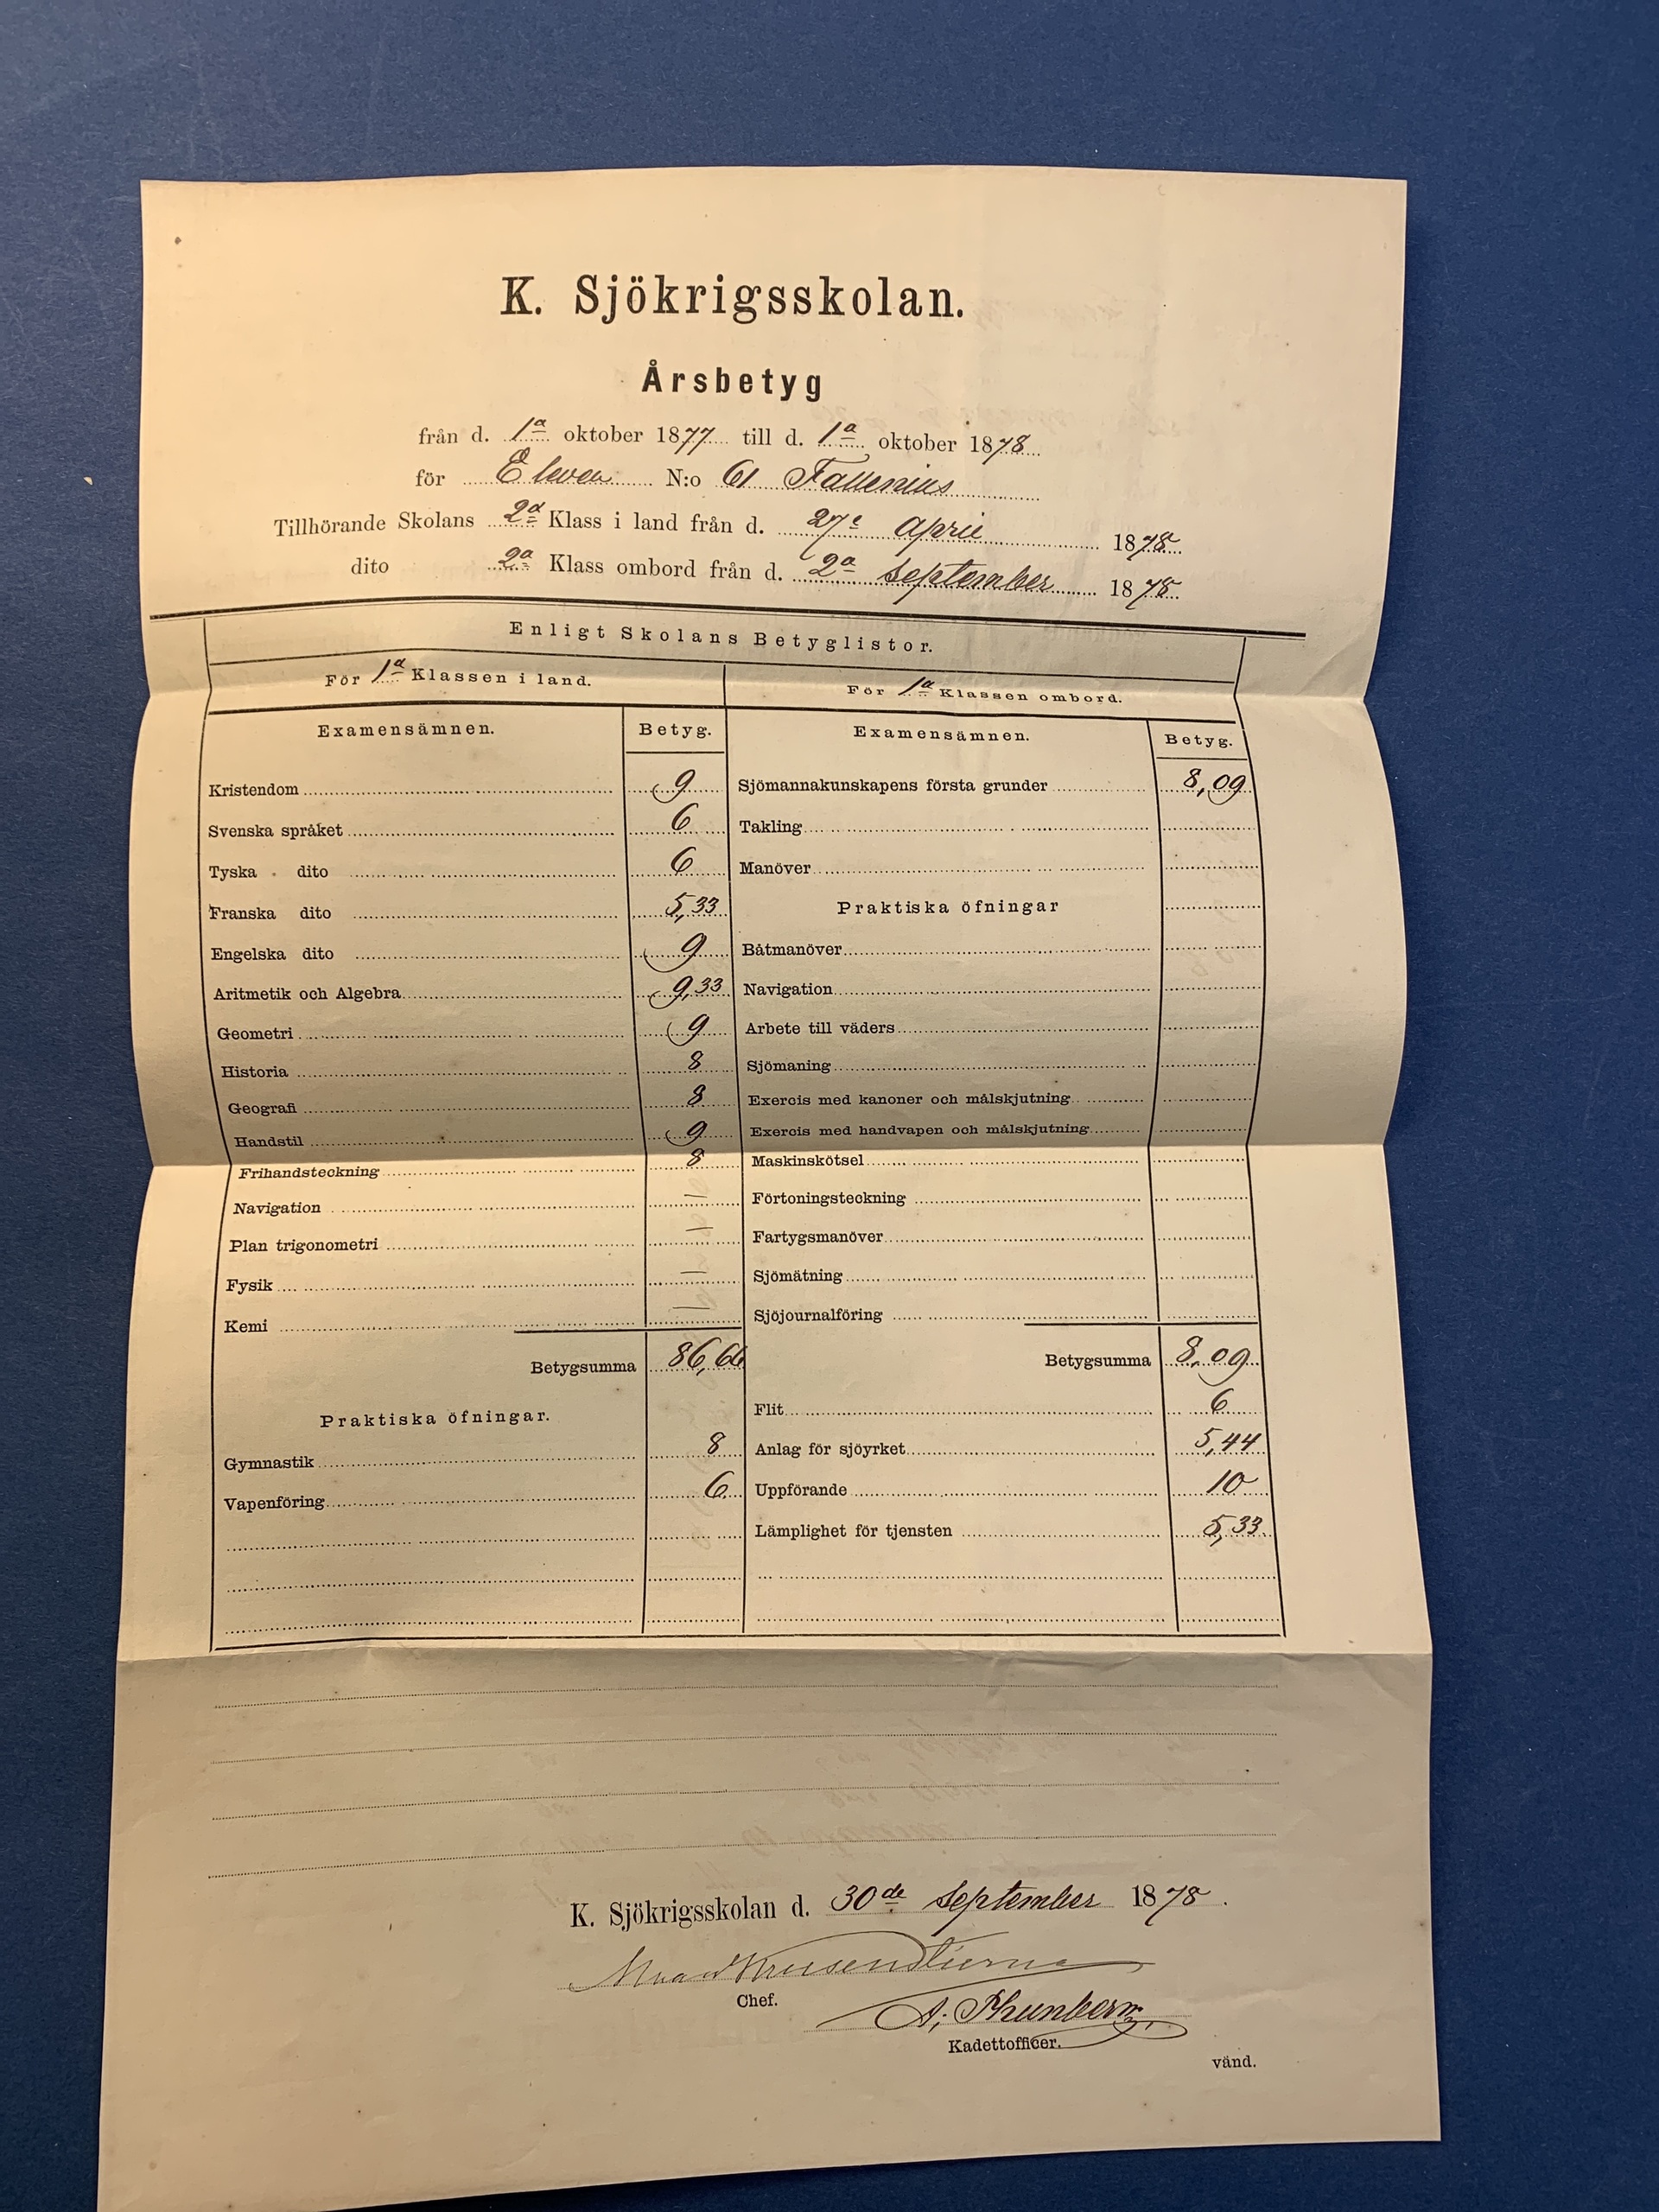 K. Sjökrigsskolan.
Årsbetyg
från d. 1a oktober 1877 till d. 1a oktober 1878
för Eleven N:o 61 Fallenius
Tillhörande Skolans 2a Klass i land från d. 27e April 1878
dito 2a Klass ombord från d. 2a September 1878
Enligt Skolans Betyglistor.
För 1a Klassen i land.
Examensämnen. Betyg.
Kristendom 9
Svenska språket 6
Tyska dito 6
Franska dito 5,33
Engelska dito 9
Aritmetik och Algebra 9,33
Geometri 9
Historia 8
Geografi 8
Handstil 9
Frihandsteckning 8
Navigation —
Plan trigonometri —
Fysik —
Kemi —
Betygsumma 86,66
Praktiska öfningar.
Gymnastik 8
Vapenföring 6
För 1a Klassen ombord.
Examensämnen. Betyg.
Sjömannakunskapens första grunder 8,09
Takling
Manöver
Praktiska öfningar
Båtmanöver
Navigation
Arbete till väders
Sjömaning
Exercis med kanoner och målskjutning
Exercis med handvapen och målskjutning
Maskinskötsel
Förtoningsteckning
Fartygsmanöver
Sjömätning
Sjöjournalföring
Betygsumma 8,09
Flit 6
Anlag för sjöyrket 5,44
Uppförande 10
Lämplighet för tjensten 5,33
K. Sjökrigsskolan d. 30de September 1878.
Krusenstierna
Chef.
A. Thunberg
Kadettofficer.
vänd.